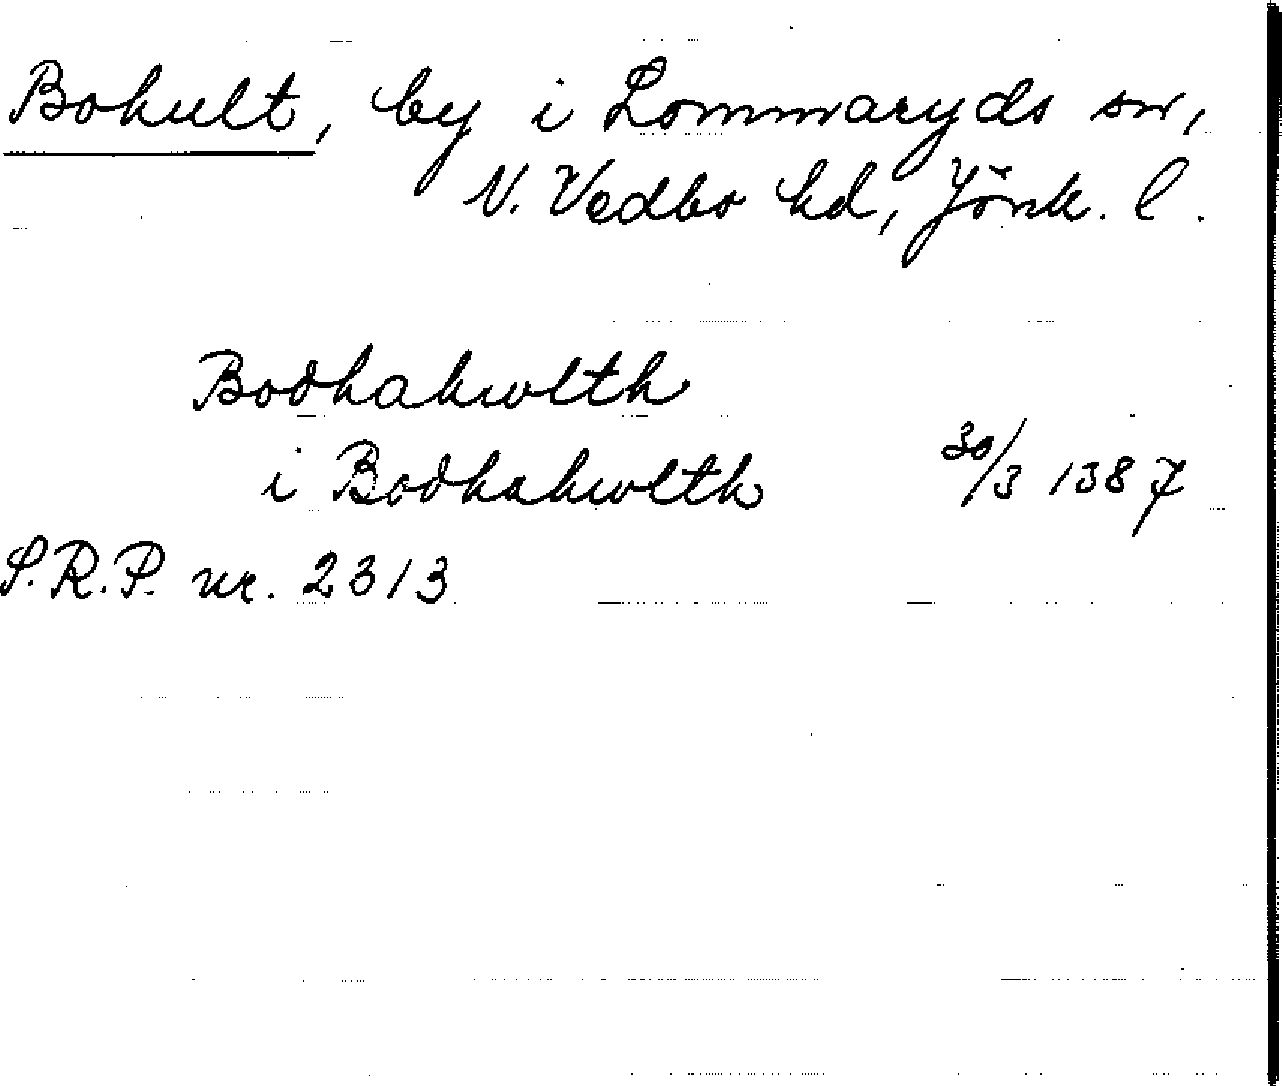 Bohult, by i Lommaryds sn,
N. Vedbo hd, Jönk. l.
Bodhahwlth
i Bodhahwlth 30/3 1387
S.R.P. nr. 2313